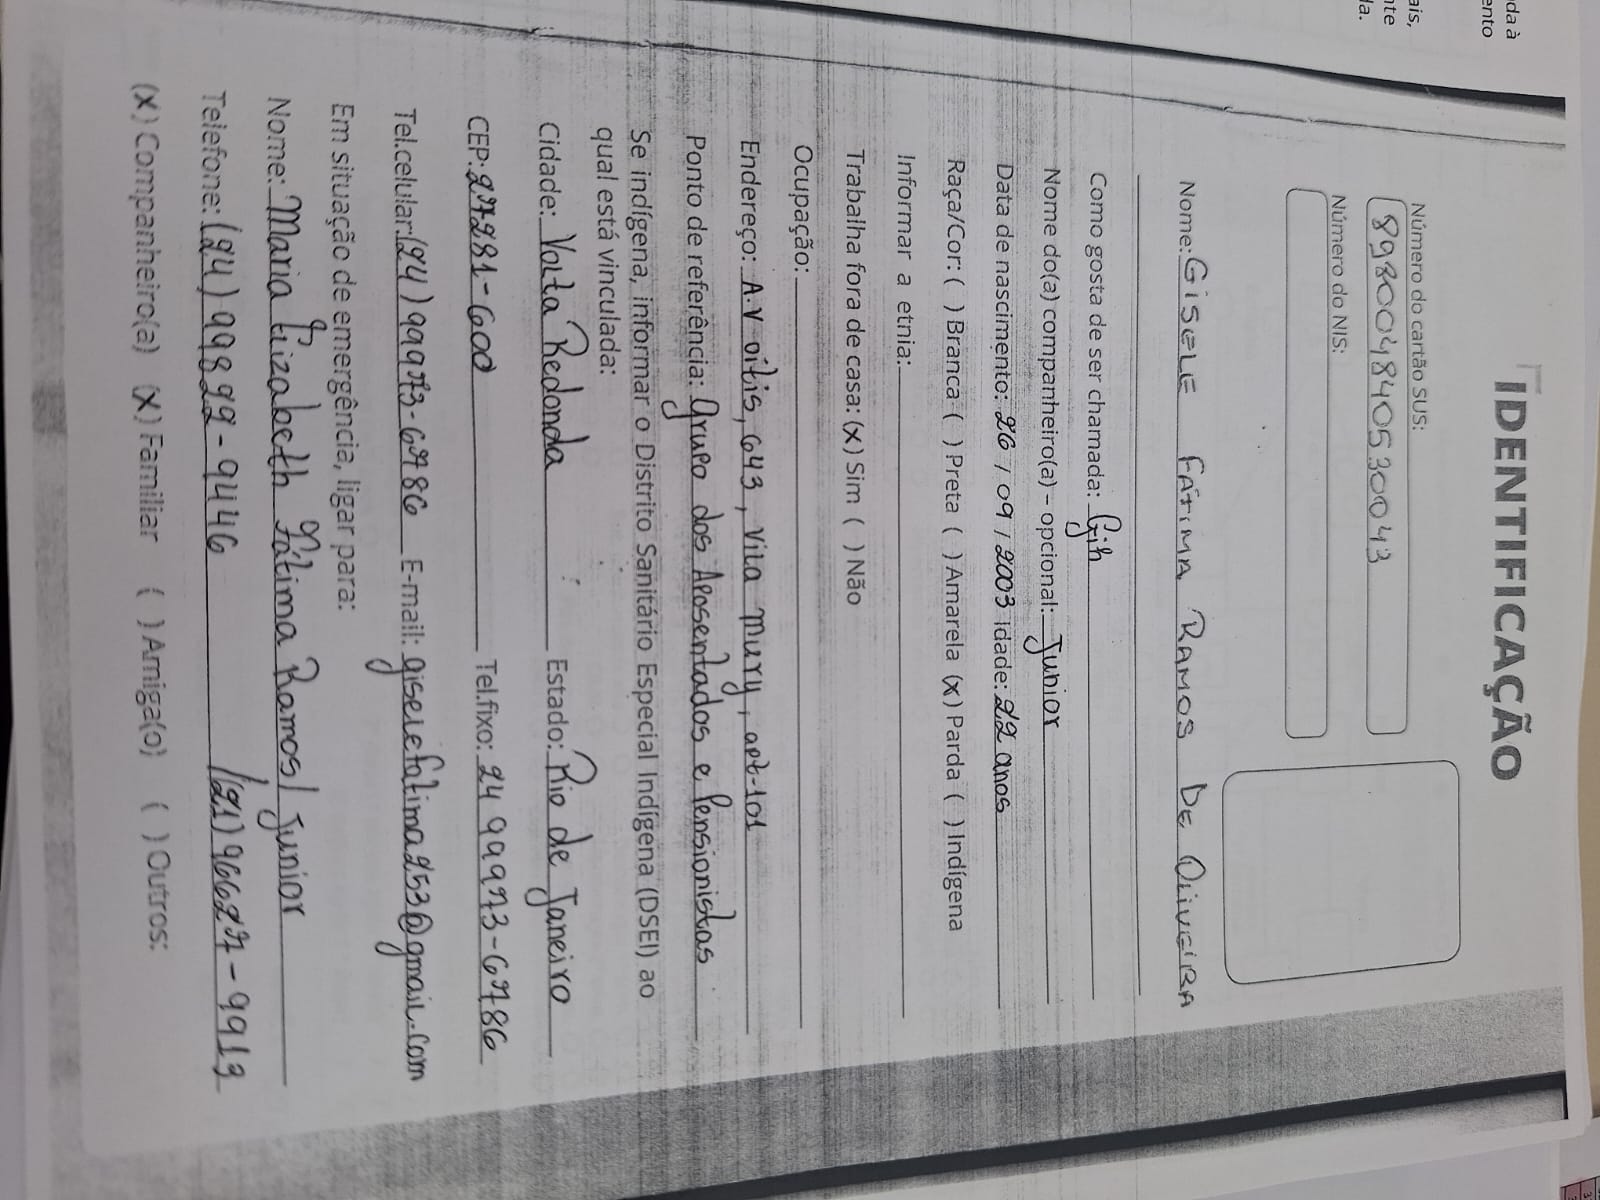 da à
ento
ais,
nte
la.
IDENTIFICAÇÃO
Número do cartão SUS:
898004840530043
Número do NIS:
Nome: GISELE FÁTIMA RAMOS DE OLIVEIRA
Como gosta de ser chamada: Gih
Nome do(a) companheiro(a) – opcional: Junior
Data de nascimento: 26 / 09 / 2003 Idade: 22 anos
Raça/Cor: ( ) Branca ( ) Preta ( ) Amarela (x) Parda ( ) Indígena
Informar a etnia:
Trabalha fora de casa: (x) Sim ( ) Não
Ocupação:
Endereço: A.V oitis, 643, Vila mury, apt-101
Ponto de referência: grupo dos Aposentados e Pensionistas
Se indígena, informar o Distrito Sanitário Especial Indígena (DSEI) ao
qual está vinculada:
Cidade: Volta Redonda Estado: Rio de Janeiro
CEP: 27281-600 Tel.fixo: 24 99973-6786
Tel.celular: (24) 99973-6786 E-mail: giselefatima253@gmail.com
Em situação de emergência, ligar para:
Nome: Maria Elizabeth Fátima Ramos / Junior
Telefone: (24) 99899-9446 / (21) 96627-9919
(X) Companheiro(a) (X) Familiar ( ) Amiga(o) ( ) Outros: